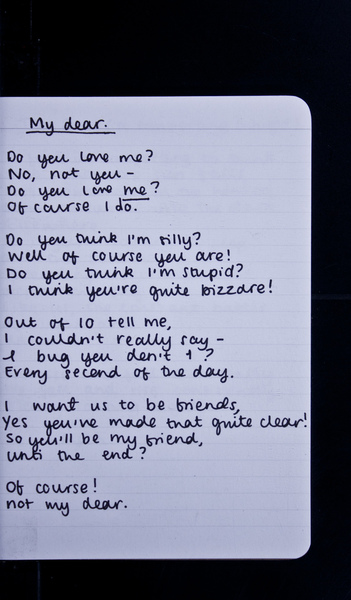 My dear.
Do you love me?
No, not you -
Do you love me?
Of course I do.
Do you think I'm silly?
Well of course you are!
Do you think I'm stupid?
I think you're quite bizzare!
Out of 10 tell me,
I couldn't really say -
I bug you don't I?
Every second of the day.
I want us to be friends,
Yes you've made that quite clear!
So you'll be my friend,
until the end?
Of course!
not my dear.